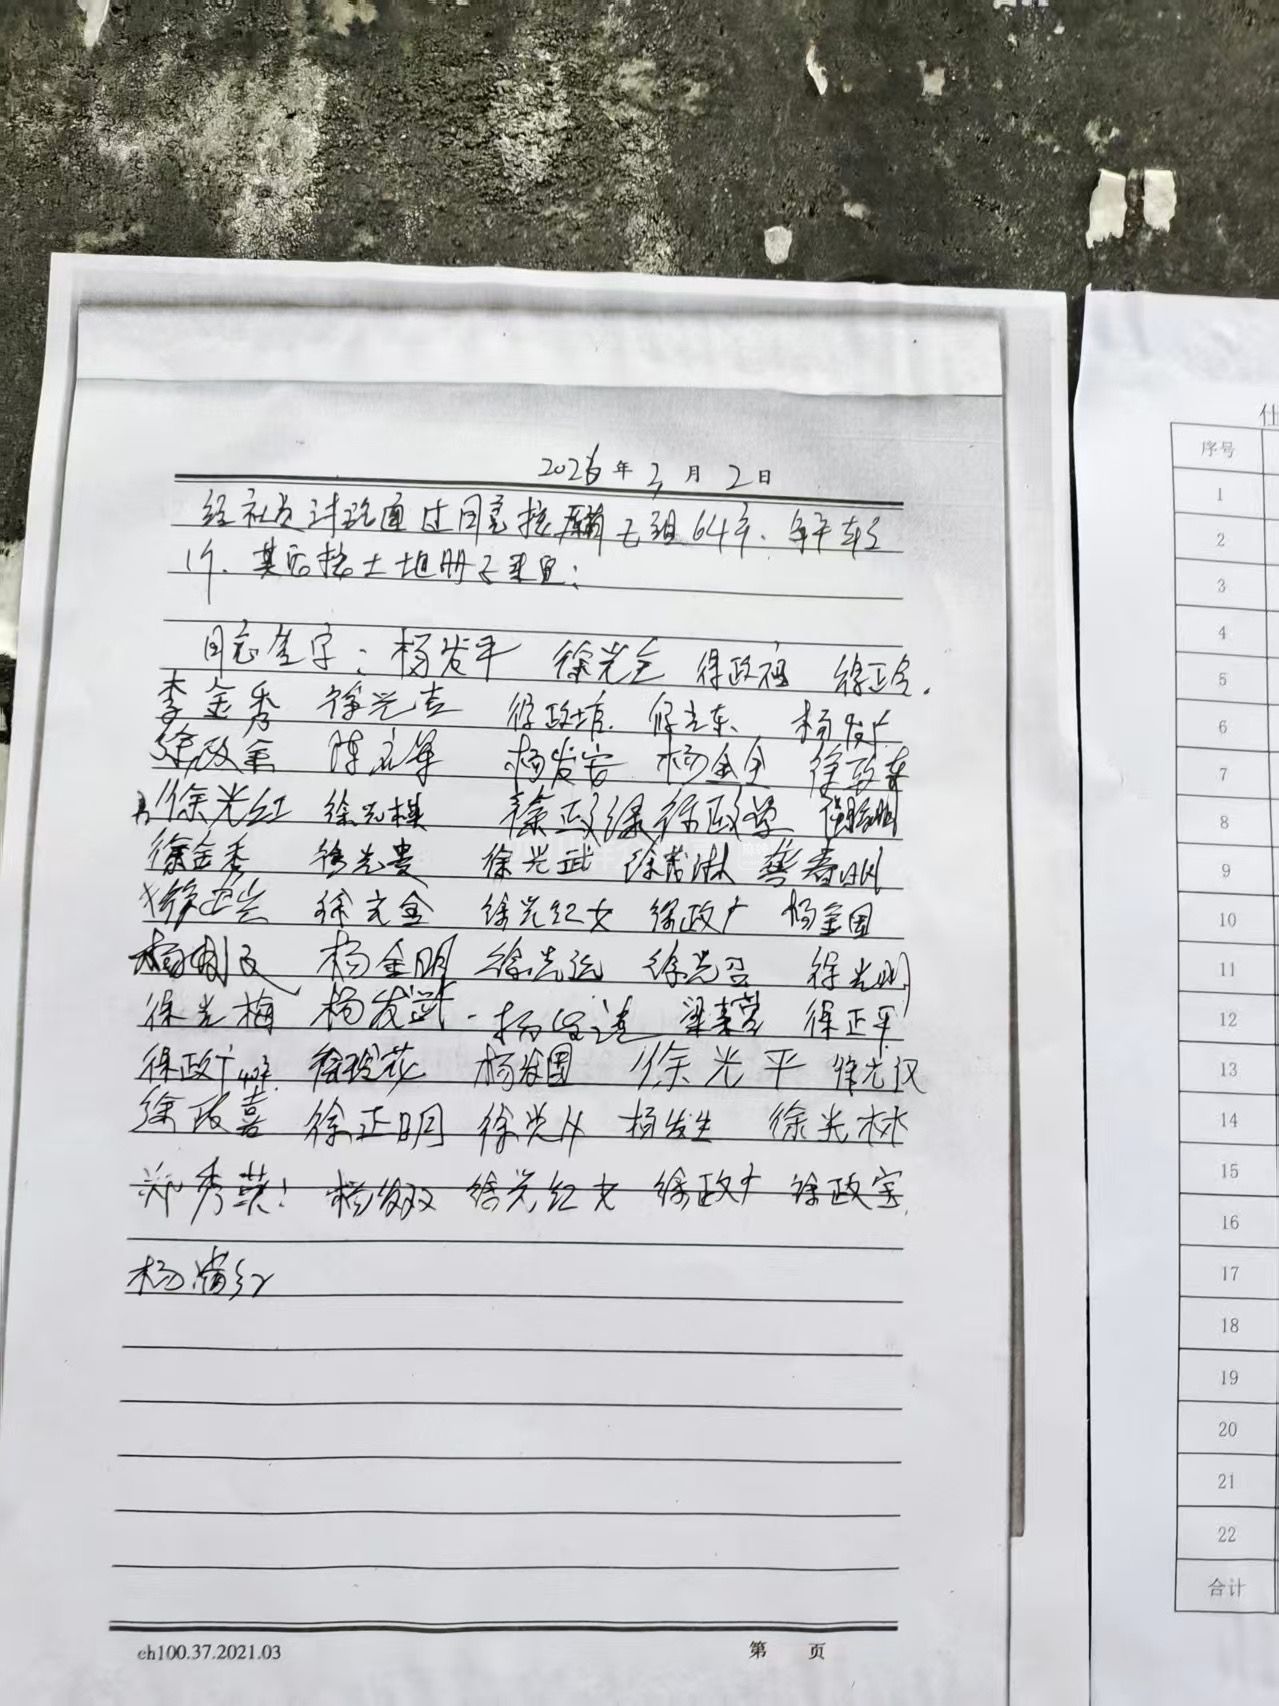 2026年3月2日
经社员讨论通过同意按 七组64户.
1个. 其后按土地册子
同意签字: 杨发平 徐光全 徐政祖 徐正全.
李金秀 徐光吉 徐政培. 徐光东、 杨发广
徐政金 陈元军 杨发安 杨金全 徐政东
徐光红 徐光棋 徐政禄 徐政学
徐金秀 徐光贵 徐光武 徐春淋 龚春明
徐正兴 徐光金 徐光红女 徐政广 杨金国
杨金明 徐光远 徐光召 徐光明
徐光梅 杨发武. 徐正平
徐政广 徐玲花 杨发国 徐光平 徐光汉
徐政喜 徐正明 徐光升 杨发生 徐光林
邓秀英! 杨发双 徐光红女 徐政广 徐政宝
杨
ch100.37.2021.03 第 页
仕
序号
1
2
3
4
5
6
7
8
9
10
11
12
13
14
15
16
17
18
19
20
21
22
合计